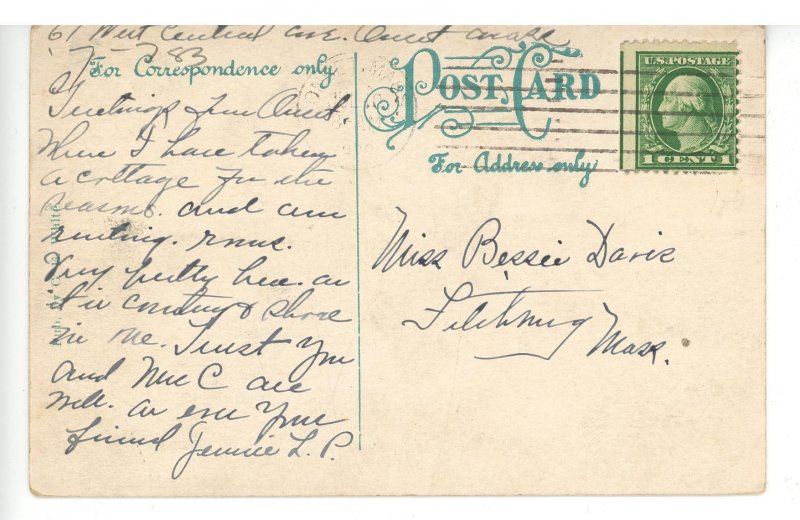 67 West Central Ave. Onset Mass
For Correspondence only
POST CARD
U.S. POSTAGE
1 CENT 1
For Address only
Greetings from Onset
Where I have taken
a cottage for the
season. and am
renting. rooms.
Very pretty here. as
it is country & shore
in one. Trust you
and Mrs C are
well. as ever your
friend Jennie L. P.
Miss Bessie Davis
Fitchburg
Mass.